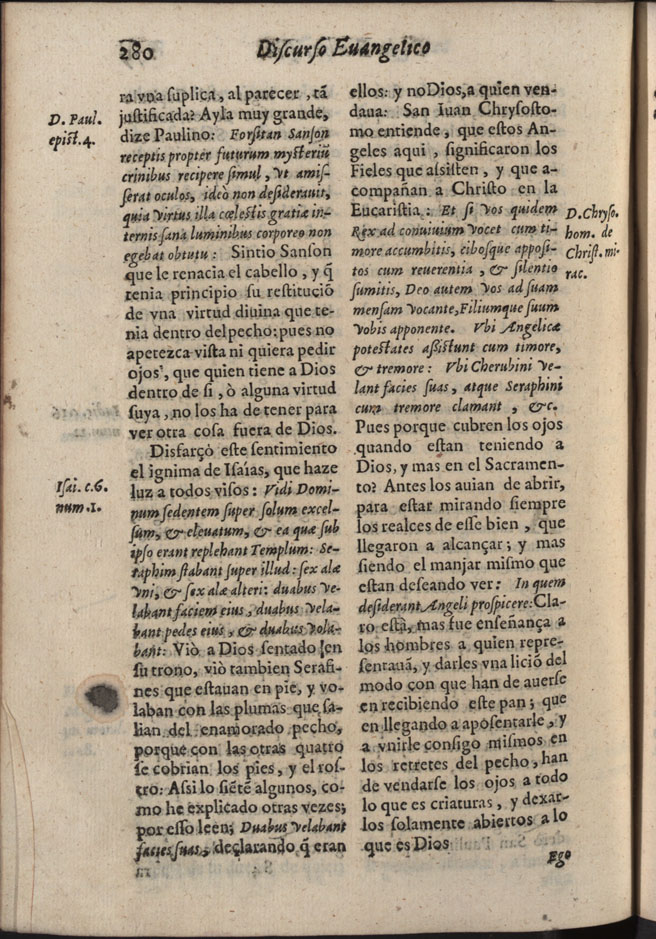 280 Discurso Euangelico
D. Paul.
epist.4.
Isai. c.6.
num.1.
ra vna suplica, al parecer, tã
justificada? Ayla muy grande,
dize Paulino: Forsitan Sanson
receptis propter futurum mysteriũ
crinibus recipere simul, vt amis-
serat oculos, ideò non desiderauit,
quia virtus illa cœlestis gratiæ in-
ternis sana luminibus corporeo non
egebat obtutu: Sintio Sanson
que le renacia el cabello, y q̃
tenia principio su restituciõ
de vna virtud diuina que te-
nia dentro del pecho: pues no
apetezca vista ni quiera pedir
ojos, que quien tiene a Dios
dentro de si, ò alguna virtud
suya, no los ha de tener para
ver otra cosa fuera de Dios.
Disfarçò este sentimiento
el ignima de Isaías, que haze
luz a todos visos: Vidi Domi-
num sedentem super solum excel-
sum, & eleuatum, & ea quæ sub
ipso erant replebant Templum: Se-
raphim stabant super illud: sex alæ
vni, & sex alæ alteri: duabus ve-
labant faciem eius, duabus vela-
bant pedes eius, & duabus vola-
bant: Viò a Dios sentado en
su trono, viò tambien Serafi-
nes que estauan en pie, y vo-
laban con las plumas que sa-
lian del enamorado pecho,
porque con las otras quatro
se cobrian los pies, y el ros-
tro: Assi lo siẽtẽ algunos, co-
mo he explicado otras vezes;
por esso leen; Duabus velabant
facies suas, declarando q̃ eran
ellos: y no Dios, a quien ven-
daua: San Iuan Chrysosto-
mo entiende, que estos An-
geles aqui, significaron los
Fieles que assisten, y que a-
compañan a Christo en la
Eucaristia: Et si vos quidem
Rex ad conuiuium vocet cum ti-
more accumbitis, cibosque apposi-
tos cum reuerentia, & silentio
sumitis, Deo autem vos ad suam
mensam vocante, Filiumque suum
vobis apponente. Vbi Angelicæ
potestates assistunt cum timore,
& tremore: Vbi Cherubini ve-
lant facies suas, atque Seraphini
cum tremore clamant, &c.
Pues porque cubren los ojos
quando estan teniendo a
Dios, y mas en el Sacramen-
to? Antes los auian de abrir,
para estar mirando siempre
los realces de esse bien, que
llegaron a alcançar; y mas
siendo el manjar mismo que
estan deseando ver: In quem
desiderant Angeli prospicere: Cla-
ro està, mas fue enseñança a
los hombres a quien repre-
sentauã, y darles vna liciõ del
modo con que han de auerse
en recibiendo este pan; que
en llegando a aposentarle, y
a vnirle consigo mismos en
los retretes del pecho, han
de vendarse los ojos a todo
lo que es criaturas, y dexar-
los solamente abiertos a lo
que es Dios
D. Chryso.
hom. de
Christ. mi-
rac.
Ego